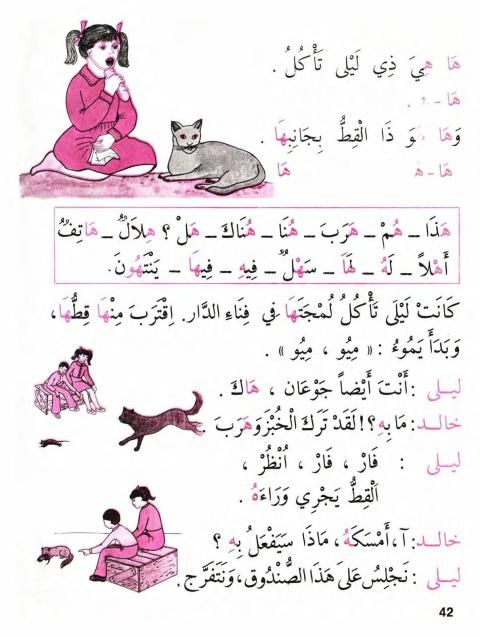 هَا هِيَ ذِي لَيْلَى تَأْكُلُ .
هَا - هـ .
وَهَا هُوَ ذَا الْقِطُّ بِجَانِبِهَا .
هَا - هـ هَا
هَذَا ــ هُمْ ــ هَرَبَ ــ هُنَا ــ هُنَاكَ ــ هَلْ ؟ هِلاَلٌ ــ هَاتِفٌ
أَهْلاً ــ لَهُ ــ لَهَا ــ سَهْلٌ ــ فِيهِ ــ فِيهَا ــ يَنْتَهُونَ.
كَانَتْ لَيْلَى تَأْكُلُ لُمْجَتَهَا فِي فِنَاءِ الدَّارِ. اِقْتَرَبَ مِنْهَا قِطُّهَا،
وَبَدَأَ يَمُوءُ : « مِيُو ، مِيُو » .
ليـلى : أَنْتَ أَيْضاً جَوْعَان ، هَاكَ .
خالـد: مَا بِهِ ؟! لَقَدْ تَرَكَ الْخُبْزَ وَهَرَبَ
ليـلى : فَارْ ، فَارْ ، اُنْظُرْ ،
اَلْقِطُّ يَجْرِي وَرَاءَهُ .
خالـد: آ، أَمْسَكَهُ ، مَاذَا سَيَفْعَلُ بِهِ ؟
ليـلى : نَجْلِسُ عَلَى هَذَا الصُّنْدُوقِ، وَنَتَفَرَّج.
42